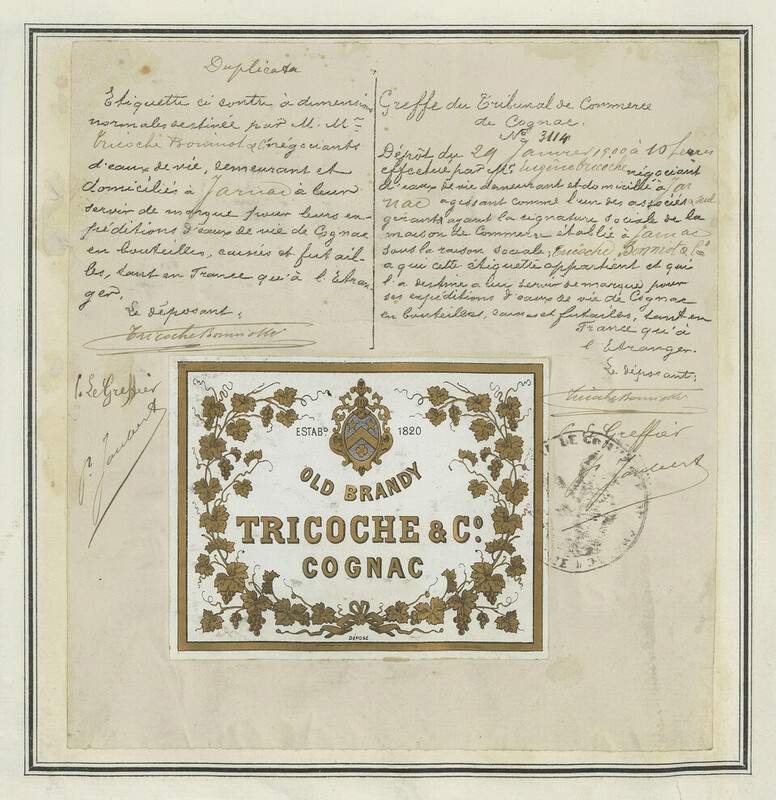 Duplicata
Etiquette ci contre à dimensions
normales destinée par M. Mrs
Tricoche Bonniot & Co négociants
d'eaux de vie, demeurant et
domiciliés à Jarnac à leur
servir de marque pour leurs ex-
péditions d'eaux de vie de Cognac
en bouteilles, caisses et futail-
les, tant en France qu'à l'Etran-
ger.
Le déposant:
Tricoche Bonniot & Co
P. Le Greffier
P. Joubert
Greffe du Tribunal de Commerce
de Cognac.
No 3114
Dépôt du 29 Janvier 1900 à 10 heures
effectué par Mr Eugène Tricoche négociant
d'eaux de vie demeurant et domicilié à Jar
nac agissant comme l'un des associés
gérants ayant la signature sociale de la
maison de Commerce établie à Jarnac
sous la raison sociale, Tricoche Bonniot & Co
a qui cette étiquette appartient et qui
l'a destine a leur servir de marque pour
ses expéditions d'eaux de vie de Cognac
en bouteilles, caisses et futailles, tant en
France qu'à
l'Etranger.
Le déposant:
Tricoche Bonniot & Co
P. Le Greffier
P. Joubert
ESTABD 1820
OLD BRANDY
TRICOCHE & Co.
COGNAC
DÉPOSÉ